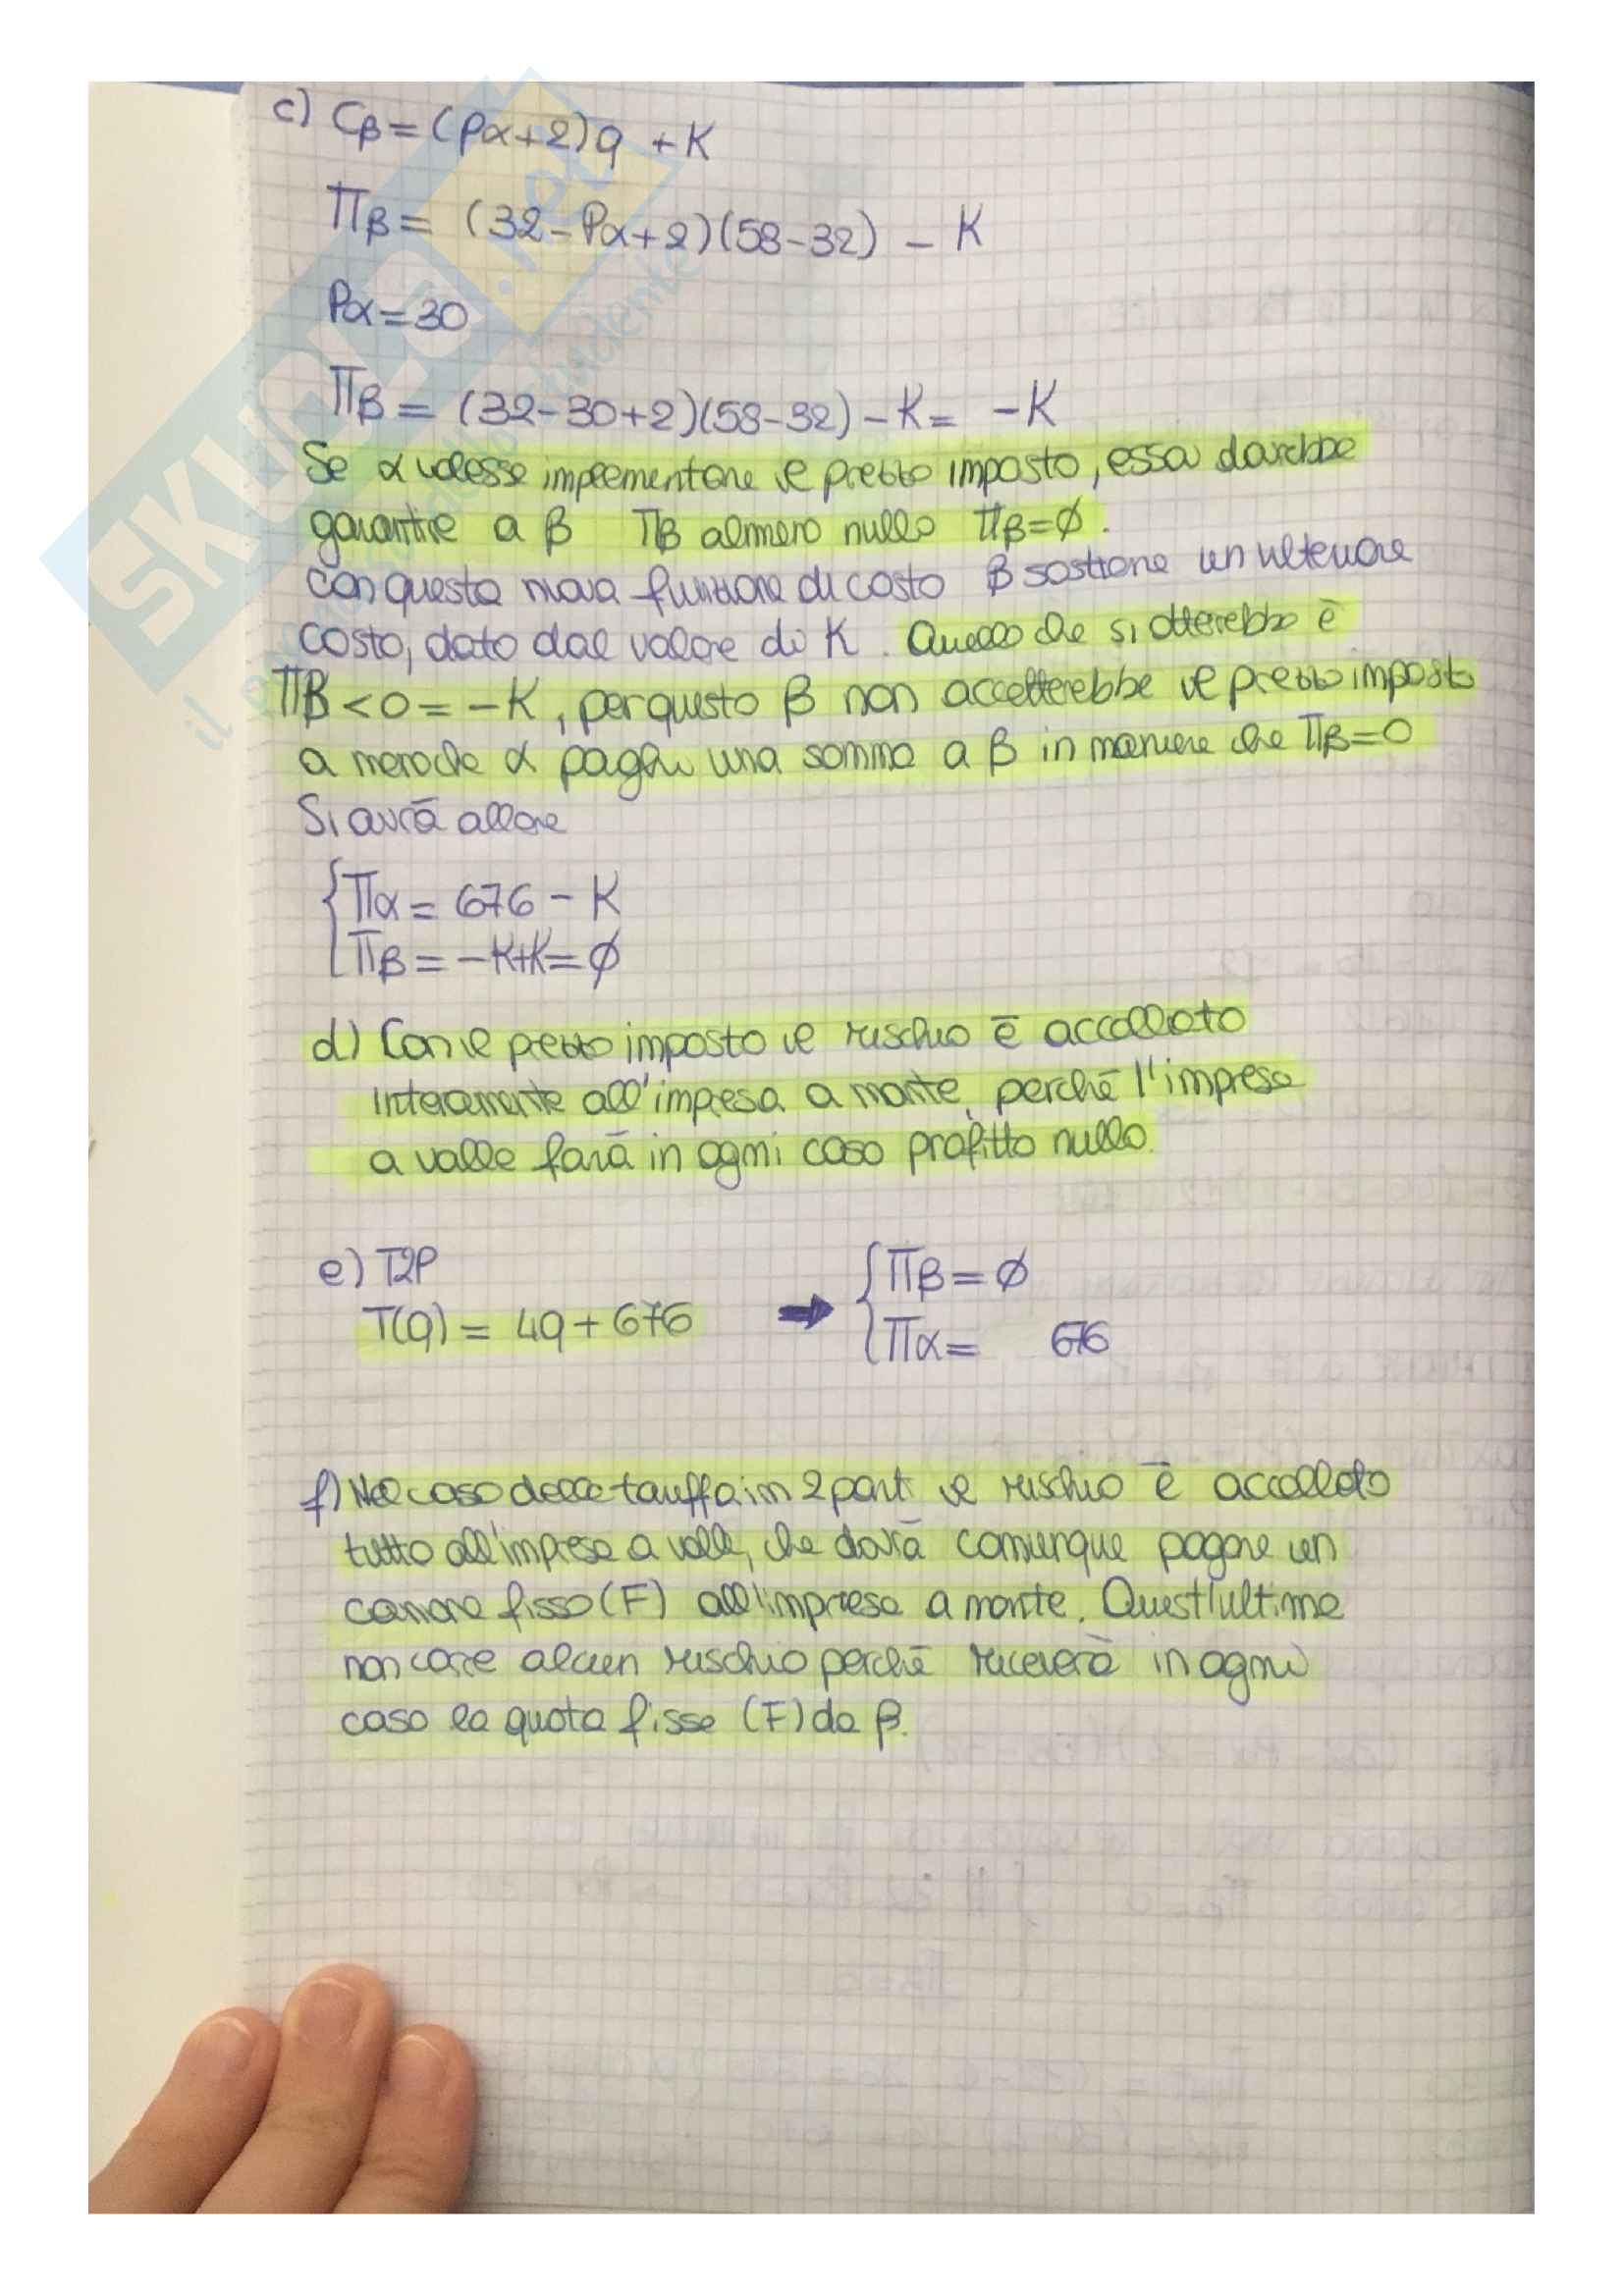 c) Cβ = (Pα+2)q + K
Πβ = (32-Pα+2)(58-32) - K
Pα = 30
Πβ = (32-30+2)(58-32) - K = -K
Se α volesse implementare il prezzo imposto, essa dovrebbe
garantire a β Πβ almeno nullo Πβ=∅.
Con questa nuova funzione di costo β sostiene un ulteriore
costo, dato dal valore di K. Quello che si otterrebbe è
Πβ < 0 = -K, per questo β non accetterebbe il prezzo imposto
a meno che α paghi una somma a β in maniera che Πβ=0
Si avrà allora
Πα = 676 - K
Πβ = -K+K = ∅
d) Con il prezzo imposto il rischio è accollato
interamente all'impresa a monte, perché l'impresa
a valle farà in ogni caso profitto nullo.
e) T2P
T(q) = 4q + 676 → Πβ = ∅
Πα = 676
f) Nel caso della tariffa in 2 parti il rischio è accollato
tutto all'impresa a valle, che dovrà comunque pagare un
canone fisso (F) all'impresa a monte. Quest'ultima
non corre alcun rischio perché riceverà in ogni
caso la quota fissa (F) da β.
SKUOLA.net